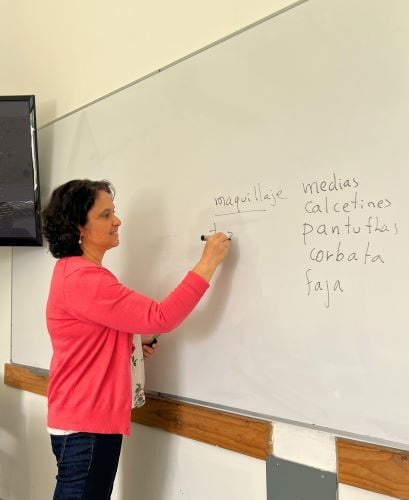 maquillaje
medias
calcetines
pantuflas
corbata
faja